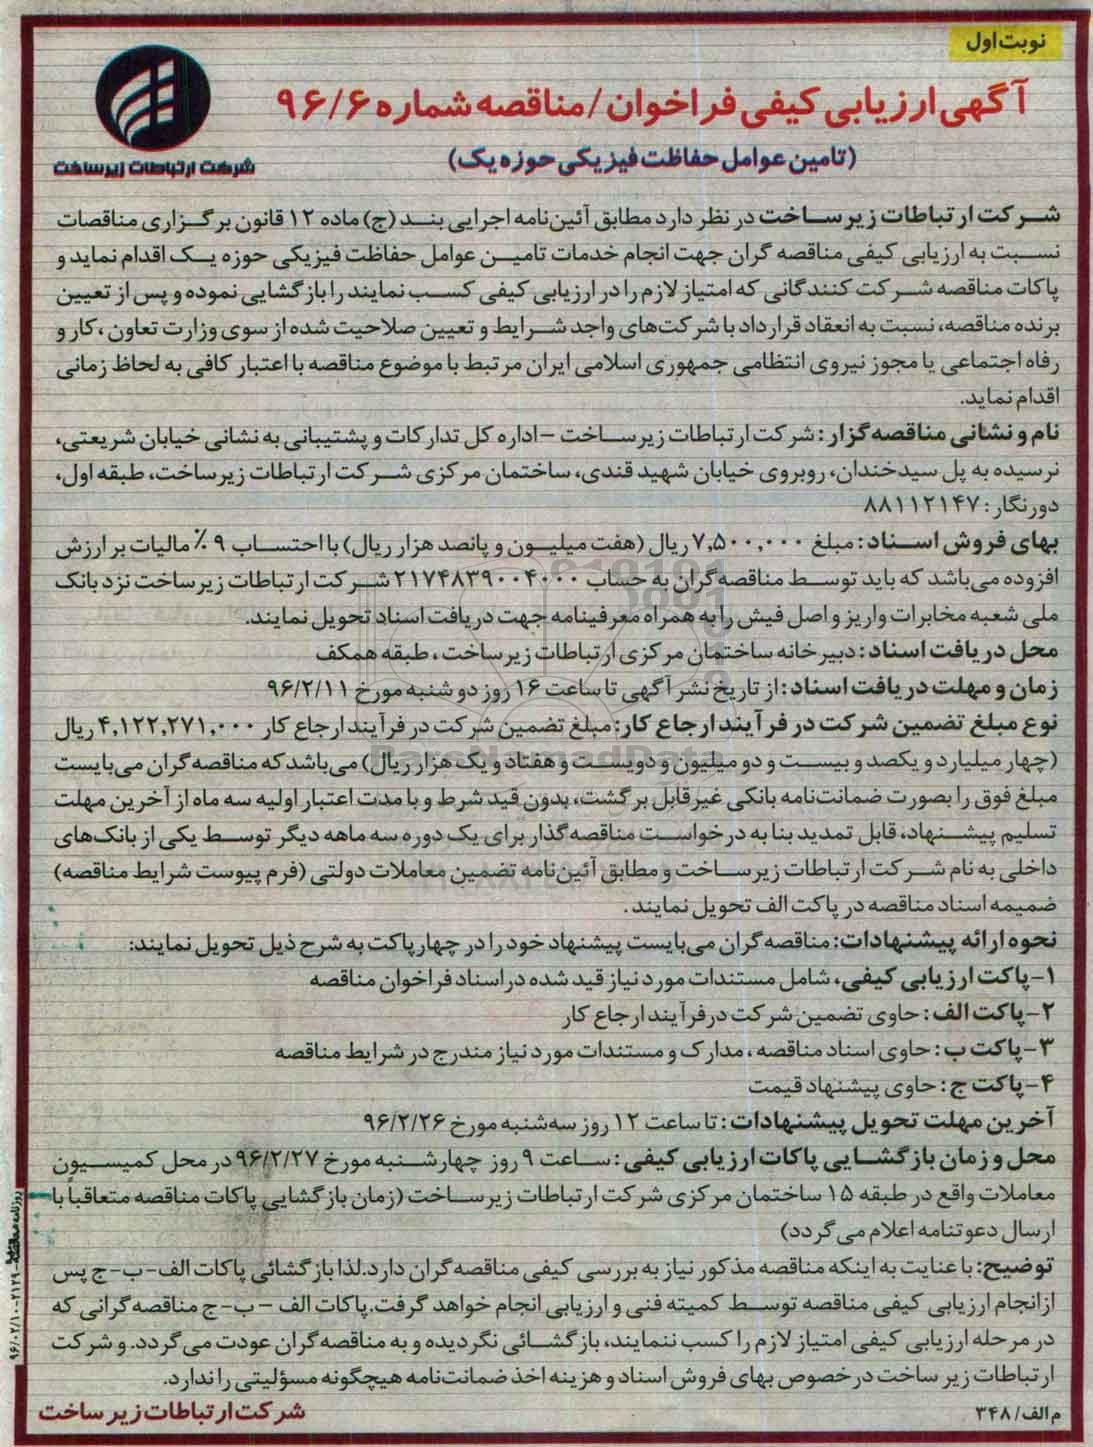 نوبت اول
آگهی ارزیابی کیفی فراخوان / مناقصه شماره ۹۶/۶
(تامین عوامل حفاظت فیزیکی حوزه یک)
شرکت ارتباطات زیرساخت
شرکت ارتباطات زیرساخت در نظر دارد مطابق آئین‌نامه اجرایی بند (ج) ماده ۱۲ قانون برگزاری مناقصات
نسبت به ارزیابی کیفی مناقصه گران جهت انجام خدمات تامین عوامل حفاظت فیزیکی حوزه یک اقدام نماید و
پاکات مناقصه شرکت کنندگانی که امتیاز لازم را در ارزیابی کیفی کسب نمایند را بازگشایی نموده و پس از تعیین
برنده مناقصه، نسبت به انعقاد قرارداد با شرکت‌های واجد شرایط و تعیین صلاحیت شده از سوی وزارت تعاون، کار و
رفاه اجتماعی یا مجوز نیروی انتظامی جمهوری اسلامی ایران مرتبط با موضوع مناقصه با اعتبار کافی به لحاظ زمانی
اقدام نماید.
نام و نشانی مناقصه گزار: شرکت ارتباطات زیرساخت – اداره کل تدارکات و پشتیبانی به نشانی خیابان شریعتی،
نرسیده به پل سیدخندان، روبروی خیابان شهید قندی، ساختمان مرکزی شرکت ارتباطات زیرساخت، طبقه اول،
دورنگار: ۸۸۱۱۲۱۴۷
بهای فروش اسناد: مبلغ ۷,۵۰۰,۰۰۰ ریال (هفت میلیون و پانصد هزار ریال) با احتساب ۹٪ مالیات بر ارزش
افزوده می‌باشد که باید توسط مناقصه گران به حساب ۲۱۷۴۸۳۹۰۰۴۰۰۰ شرکت ارتباطات زیرساخت نزد بانک
ملی شعبه مخابرات واریز و اصل فیش را به همراه معرفینامه جهت دریافت اسناد تحویل نمایند.
محل دریافت اسناد: دبیرخانه ساختمان مرکزی ارتباطات زیرساخت، طبقه همکف
زمان و مهلت دریافت اسناد: از تاریخ نشر آگهی تا ساعت ۱۶ روز دو شنبه مورخ ۹۶/۲/۱۱
نوع مبلغ تضمین شرکت در فرآیند ارجاع کار: مبلغ تضمین شرکت در فرآیند ارجاع کار ۴,۱۲۲,۲۷۱,۰۰۰ ریال
(چهار میلیارد و یکصد و بیست و دو میلیون و دویست و هفتاد و یک هزار ریال) می‌باشد که مناقصه گران می‌بایست
مبلغ فوق را بصورت ضمانت‌نامه بانکی غیرقابل برگشت، بدون قید شرط و با مدت اعتبار اولیه سه ماه از آخرین مهلت
تسلیم پیشنهاد، قابل تمدید بنا به درخواست مناقصه گذار برای یک دوره سه ماهه دیگر توسط یکی از بانک‌های
داخلی به نام شرکت ارتباطات زیرساخت و مطابق آئین‌نامه تضمین معاملات دولتی (فرم پیوست شرایط مناقصه)
ضمیمه اسناد مناقصه در پاکت الف تحویل نمایند.
نحوه ارائه پیشنهادات: مناقصه گران می‌بایست پیشنهاد خود را در چهار پاکت به شرح ذیل تحویل نمایند:
۱- پاکت ارزیابی کیفی، شامل مستندات مورد نیاز قید شده در اسناد فراخوان مناقصه
۲- پاکت الف: حاوی تضمین شرکت در فرآیند ارجاع کار
۳- پاکت ب: حاوی اسناد مناقصه، مدارک و مستندات مورد نیاز مندرج در شرایط مناقصه
۴- پاکت ج: حاوی پیشنهاد قیمت
آخرین مهلت تحویل پیشنهادات: تا ساعت ۱۲ روز سه‌شنبه مورخ ۹۶/۲/۲۶
محل و زمان بازگشایی پاکات ارزیابی کیفی: ساعت ۹ روز چهارشنبه مورخ ۹۶/۲/۲۷ در محل کمیسیون
معاملات واقع در طبقه ۱۵ ساختمان مرکزی شرکت ارتباطات زیرساخت (زمان بازگشایی پاکات مناقصه متعاقباً با
ارسال دعوتنامه اعلام می گردد)
توضیح: با عنایت به اینکه مناقصه مذکور نیاز به بررسی کیفی مناقصه گران دارد. لذا بازگشائی پاکات الف- ب- ج پس
از انجام ارزیابی کیفی مناقصه توسط کمیته فنی و ارزیابی انجام خواهد گرفت. پاکات الف – ب- ج مناقصه گرانی که
در مرحله ارزیابی کیفی امتیاز لازم را کسب ننمایند، بازگشائی نگردیده و به مناقصه گران عودت می گردد. و شرکت
ارتباطات زیر ساخت در خصوص بهای فروش اسناد و هزینه اخذ ضمانت‌نامه هیچگونه مسؤلیتی را ندارد.
م الف/ ۳۴۸
شرکت ارتباطات زیر ساخت
ParsNamadData